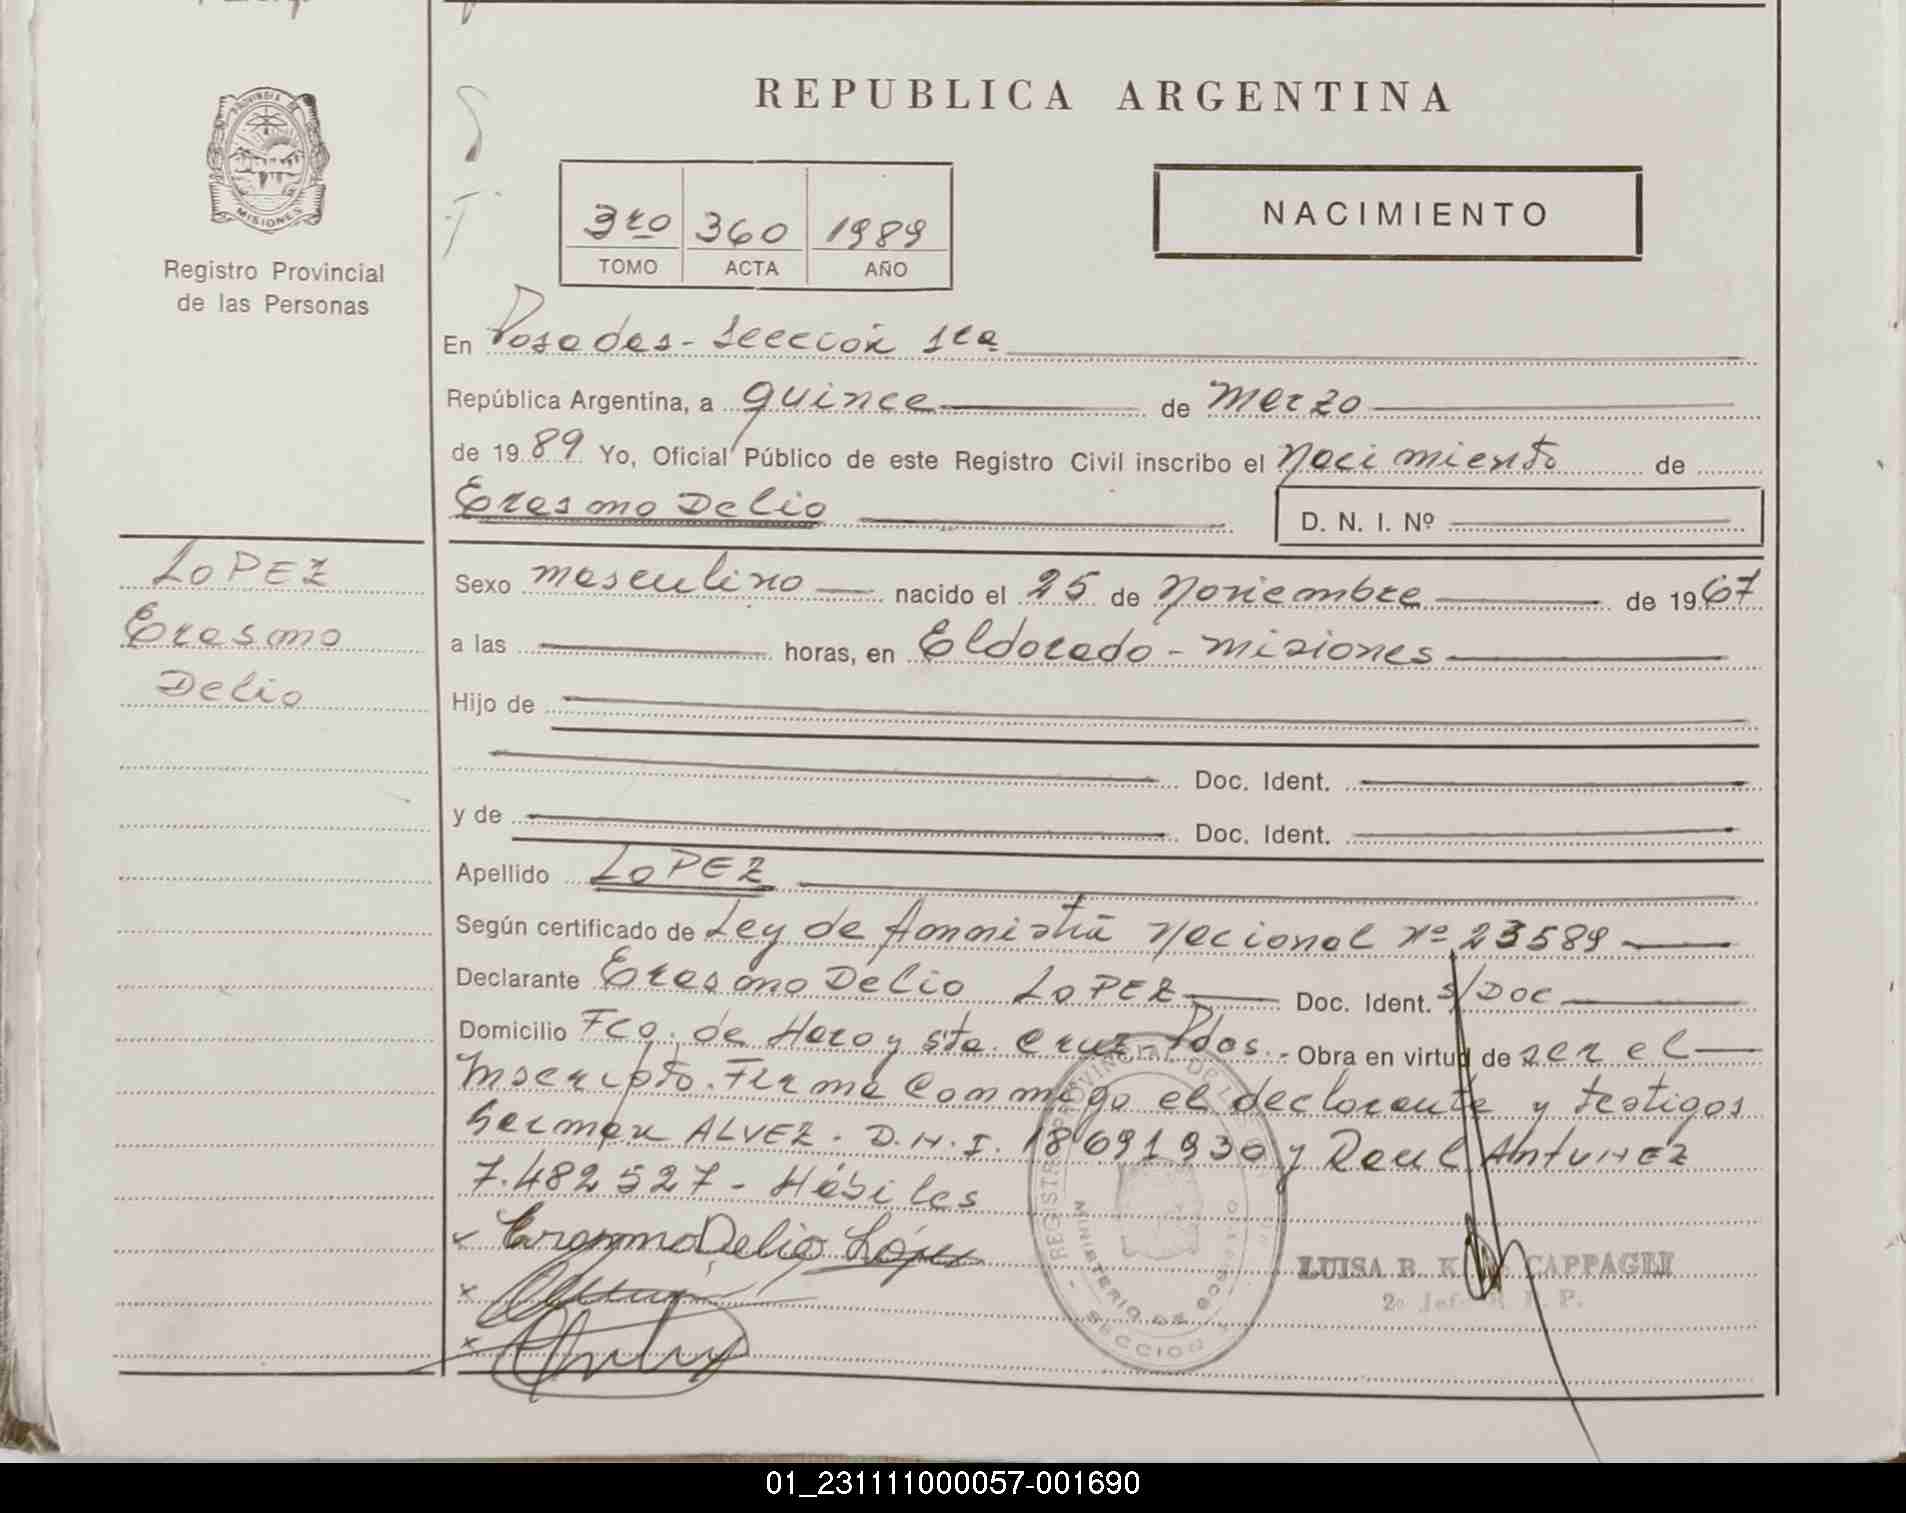 REPUBLICA ARGENTINA
PROVINCIA DE
MISIONES
Registro Provincial
de las Personas
3ro 360 1989
TOMO ACTA AÑO
NACIMIENTO
En Posadas - Sección 1ra
República Argentina, a quince de Marzo
de 1989 Yo, Oficial Público de este Registro Civil inscribo el Nacimiento de
Erasmo Delio D. N. I. Nº
LOPEZ
Erasmo
Delio
Sexo masculino nacido el 25 de Noviembre de 1967
a las horas, en Eldorado - Misiones
Hijo de
Doc. Ident.
y de Doc. Ident.
Apellido LOPEZ
Según certificado de Ley de Amnistia Nacional Nº 23589
Declarante Erasmo Delio LOPEZ Doc. Ident. s/Doc
Domicilio Fco. de Haro y Sta. Cruz - Pdas. - Obra en virtud de ser el
Inscripto. Firma Conmigo el declarante y testigos
German ALVEZ - D.N.I. 18691930 y Raul ANTUNEZ
7.482527 - Hábiles
x Erasmo Delio López
x
x
REGISTRO PROVINCIAL DE LAS
MINISTERIO DE GOBIERNO
SECCION
LUISA B. K. CAPPAGLI
2º Jefe R. P.
01_231111000057-001690